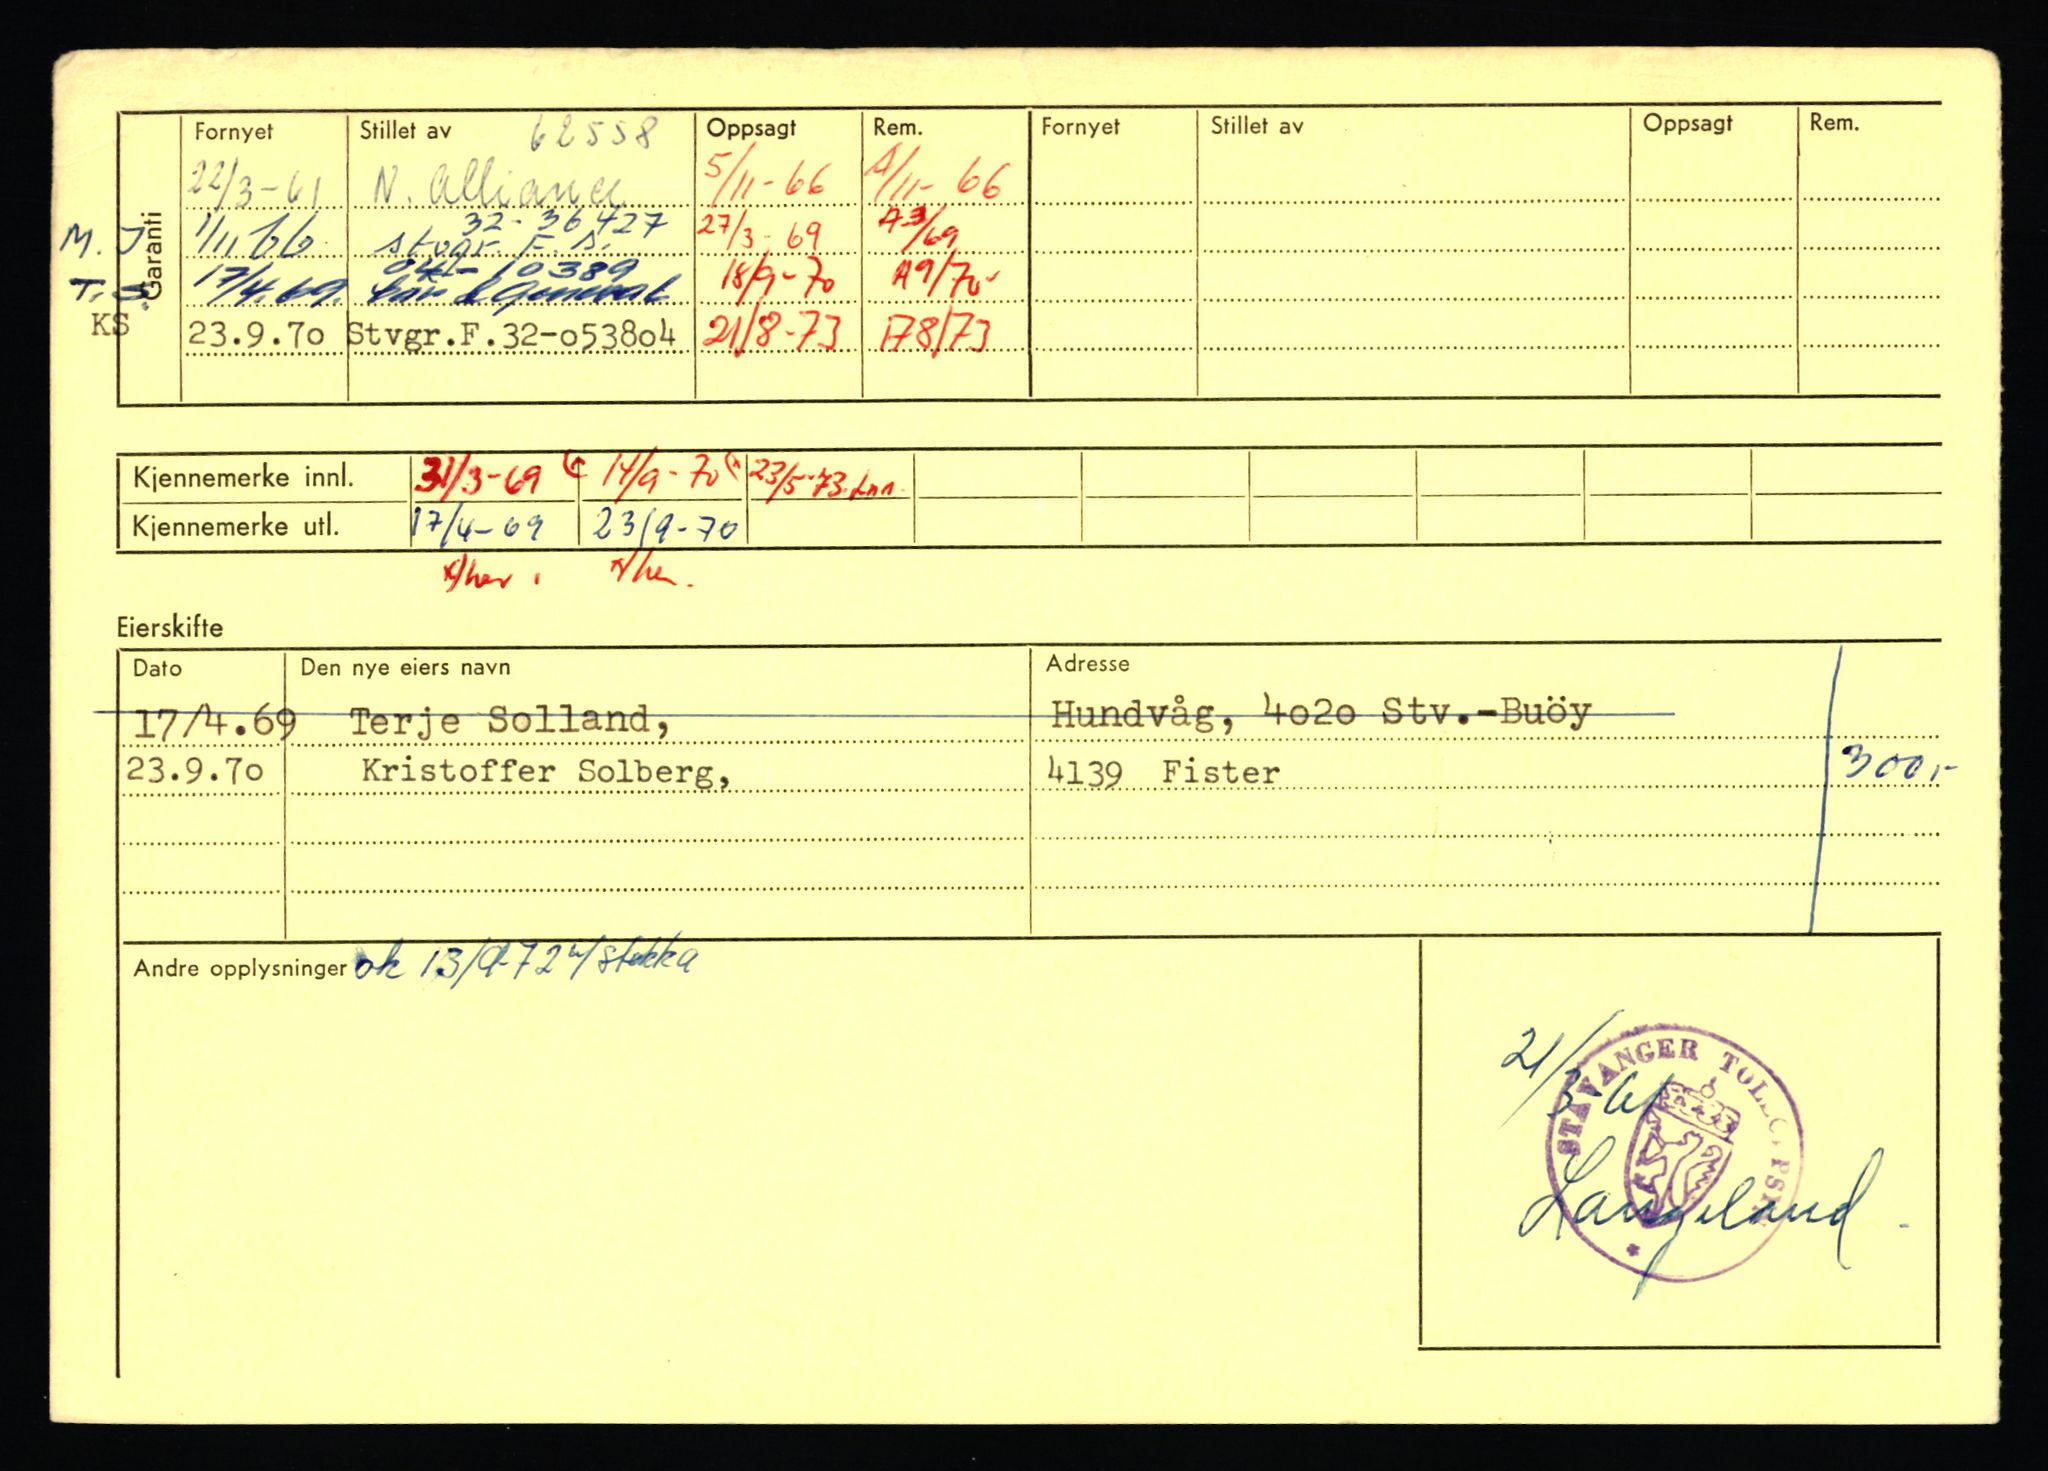 Garanti
Fornyet Stillet av 62558 Oppsagt Rem. Fornyet Stillet av Oppsagt Rem.
22/3-61 N. Alliance 5/11-66 A/11-66
M. J 1/11 66 32-36427 Stvgr. F. 27/3-69 A3/69
T. S. 17/4.69. 041-10389 18/9-70 A9/70-
KS 23.9.70 Stvgr.F.32-053804 21/8-73 178/73
Kjennemerke innl. 31/3-69 14/9-70 23/5-73.
Kjennemerke utl. 17/4-69 23/9-70
Eierskifte
Dato Den nye eiers navn Adresse
17/4.69 Terje Solland, Hundvåg, 4020 Stv.-Buöy
23.9.70 Kristoffer Solberg, 4139 Fister 300,-
Andre opplysninger ok 13/9-72
21/3-61
STAVANGER
Langeland